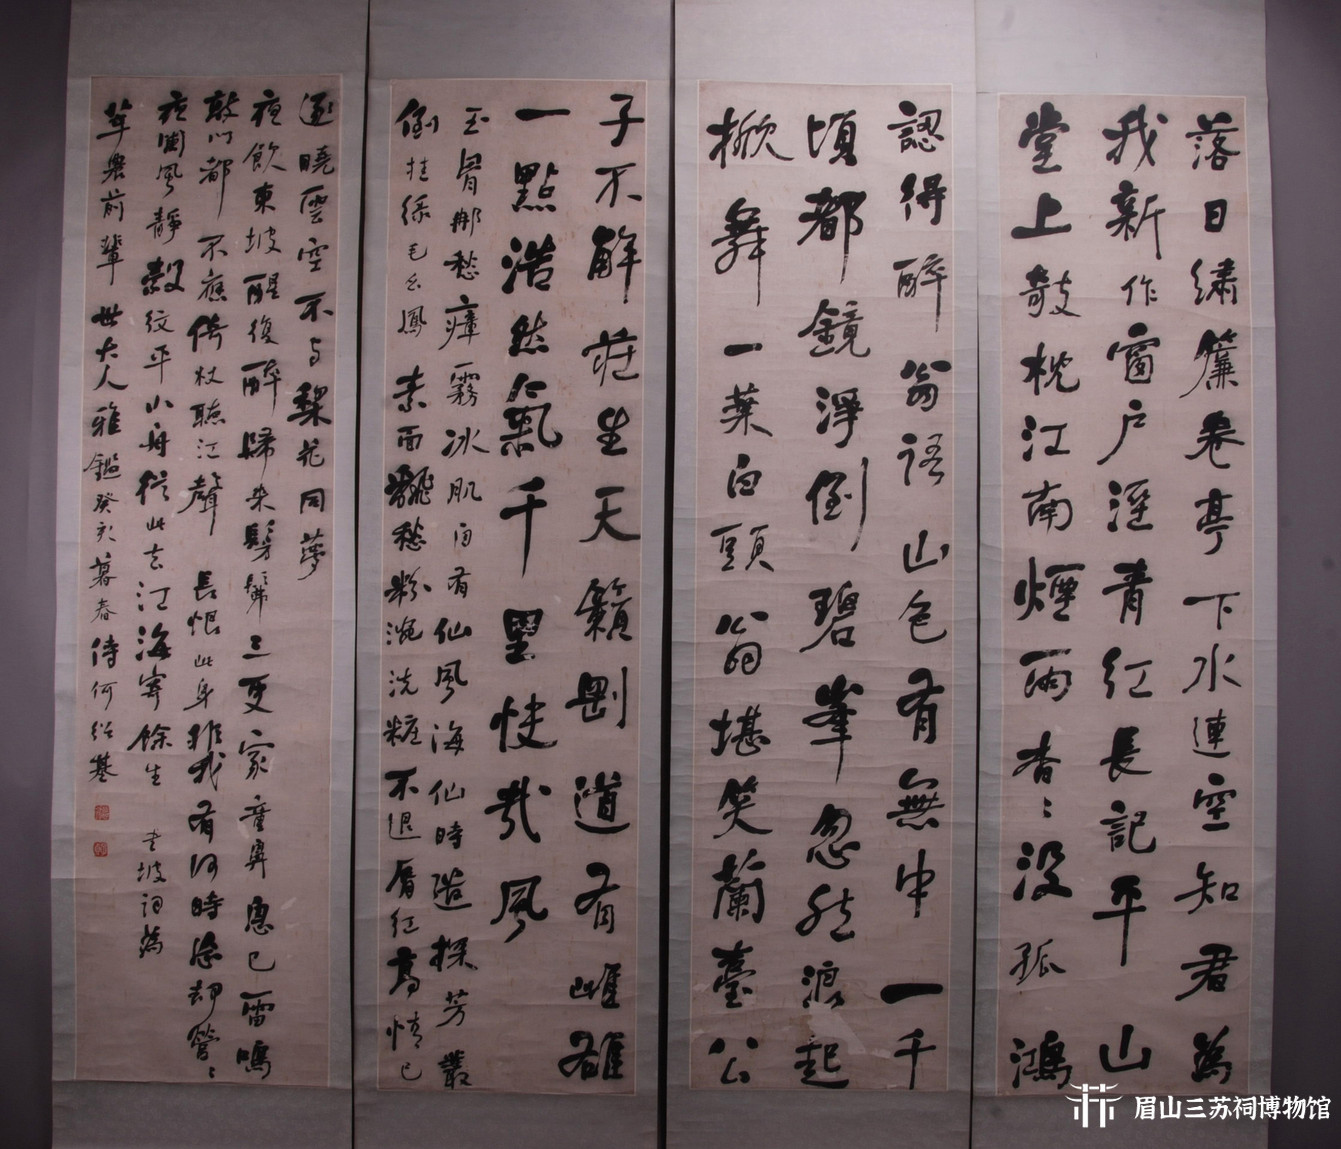 落日繡簾卷亭下水連空知君為
我新作窗戶溼青紅長記平山
堂上敧枕江南煙雨杳〻沒孤鴻
認得醉翁語山色有無中一千
頃都鏡淨倒碧峯忽然浪起
掀舞一葉白頭翁堪笑蘭臺公
子不解莊生天籟剛道有雌雄
一點浩然氣千里快哉風
玉骨那愁瘴霧冰肌自有仙風海仙時遣探芳叢
倒挂綠毛幺鳳素面翻愁粉涴洗糚不退脣紅高情已
逐曉雲空不与棃花同夢
夜飲東坡醒復醉歸來髣髴三更家童鼻息已雷鳴
敲門都不應倚杖聽江聲 長恨此身非我有何時忘却營〻
夜闌風靜縠紋平小舟從此去江海寄餘生 老坡詞為
莘農前輩世大人雅鑑癸亥暮春侍何紹基
眉山三苏祠博物馆